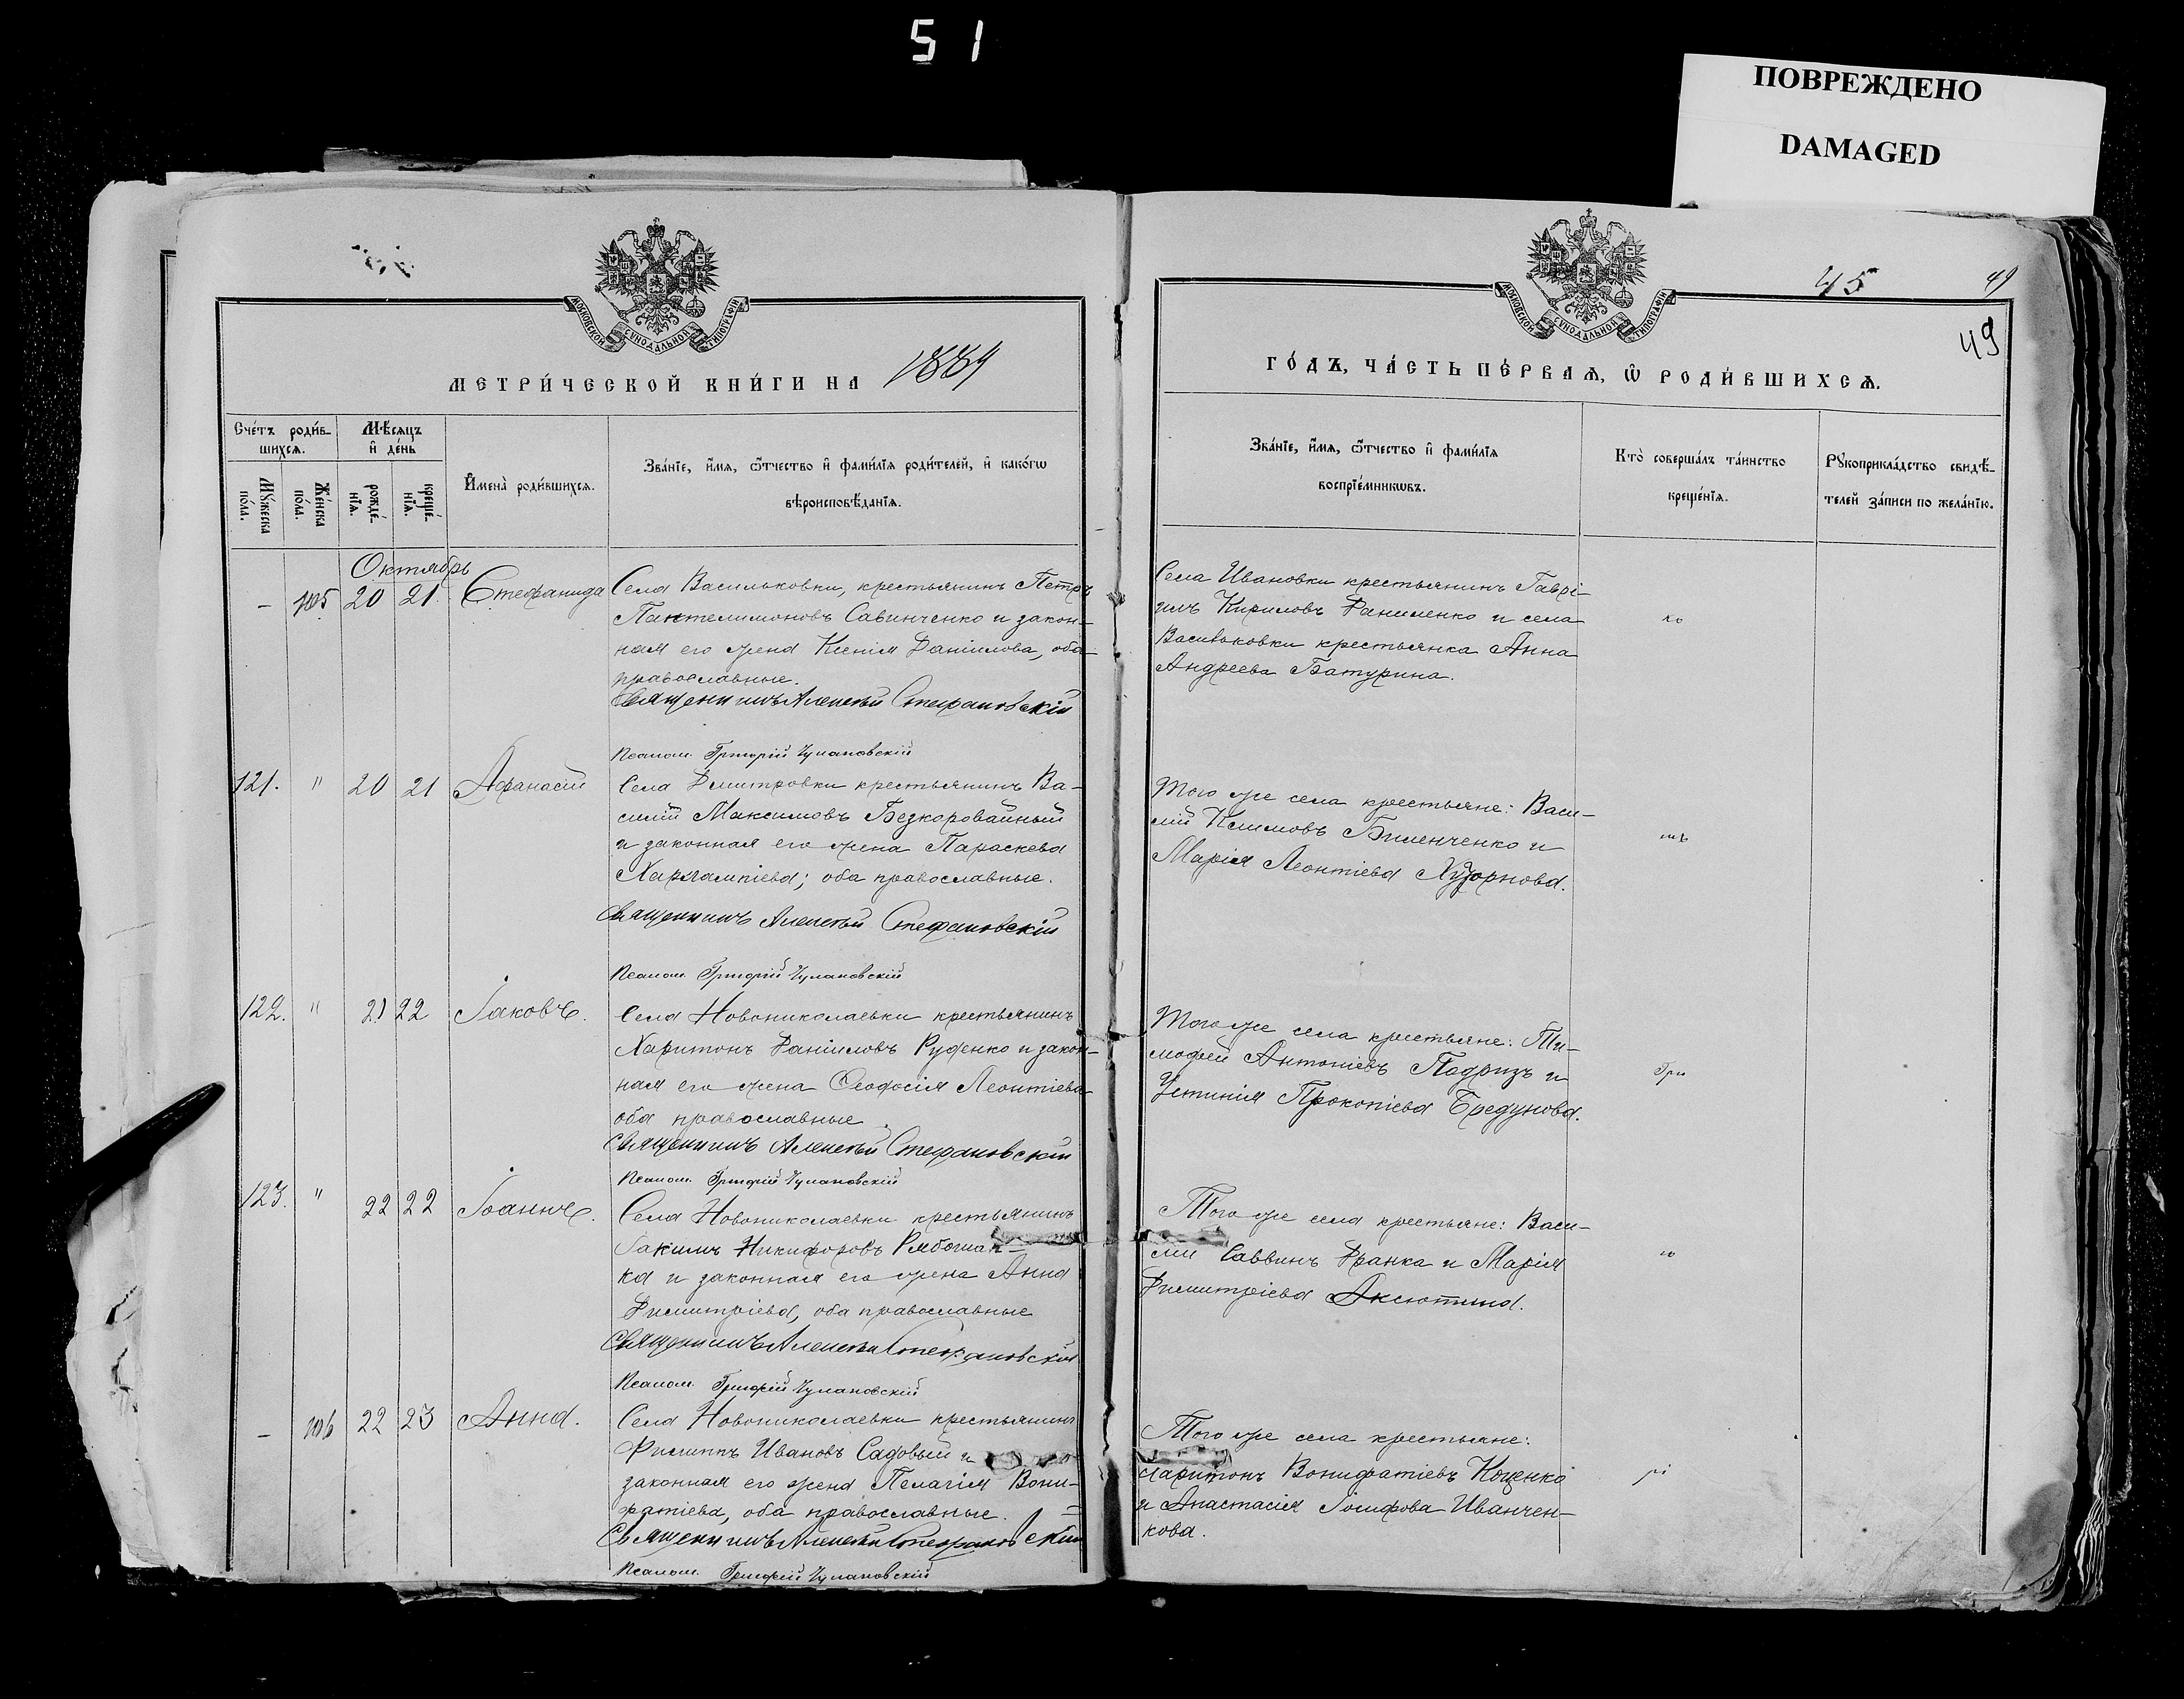 51
ПОВРЕЖДЕНО
DAMAGED
МОСКОВСКОЙ СѴНОДАЛЬНОЙ ТИПОГРАФІИ
МЕТРИ́ЧЕСКОЙ КНИ́ГИ НА 1884
Сче́тъ роди́в-
шихсѧ.
Мѣ́сѧцъ
и҆ де́нь
Мꙋ́жеска
по́ла.
Же́нска
по́ла.
рожде́-
нїѧ.
креще́-
нїѧ.
И҆мена̀ роди́вшихсѧ.
Зва́нїе, и҆́мѧ, ѻ҆́тчество и҆ фами́лїѧ роди́телей, и҆ како́гѡ
вѣроисповѣ́данїѧ.
Октябрь
- 105 20 21 Стефанида
Села Васильковки, крестьянинъ Петръ
Пантелимоновъ Савинченко и закон-
ная его жена Ксенія Даніилова, оба
православные.
Священникъ Алексѣй Стефановскій
Псалом. Григорій Чулановскій
121. " 20 21 Афанасій
Села Дмитровки крестьянинъ Ва-
силій Максимовъ Безкоровайный
и законная его жена Параскева
Харлампіева; оба православные.
Священникъ Алексѣй Стефановскій
Псалом. Григорій Чулановскій
122. " 21 22 Іаковъ.
Села Новониколаевки крестьянинъ
Харитонъ Даніиловъ Руденко и закон-
ная его жена Феодосія Леонтіева
оба православные.
Священникъ Алексѣй Стефановскій
Псалом. Григорій Чулановскій
123. " 22 22 Іоаннъ.
Села Новониколаевки крестьянинъ
Іакимъ Никифоровъ Рябошап-
ка и законная его жена Анна
Димитріева, оба православные
Священникъ Алексѣй Стефановскій
Псалом. Григорій Чулановскій
- 106 22 23 Анна.
Села Новониколаевки крестьянинъ
Филиппъ Ивановъ Садовый и
законная его жена Пелагія Вони-
фатіева, оба православные.
Священникъ Алексѣй Стефановскій
Псалом. Григорій Чулановскій
45 49
49
МОСКОВСКОЙ СѴНОДАЛЬНОЙ ТИПОГРАФІИ
ГО́ДЪ, ЧА́СТЬ ПЕ́РВАѦ, Ѡ҆ РОДИ́ВШИХСѦ.
Зва́нїе, и҆́мѧ, ѻ҆́тчество и҆ фами́лїѧ
воспрїе́мникѡвъ.
Кто̀ соверша́лъ та́инство
креще́нїѧ.
Рꙋкоприкла́дство свидѣ́-
телей за́писи по жела́нїю.
Села Ивановки крестьянинъ Гаврі-
илъ Кириловъ Даниленко и села
Васильковки крестьянка Анна
Андреева Батурина.
Того же села крестьяне: Васи-
лій Климовъ Биленченко и
Марія Леонтіева Хуторнова.
Того же села крестьяне: Ти-
мофей Антоніевъ Подризъ и
Устинія Прокопіева Бредунова.
Гри
Того же села крестьяне: Васи-
лій Саввинъ Франка и Марія
Димитріева Аксютина.
Того же села крестьяне:
Харитонъ Вонифатіевъ Коценко
и Анастасія Іосифова Иванчен-
кова.